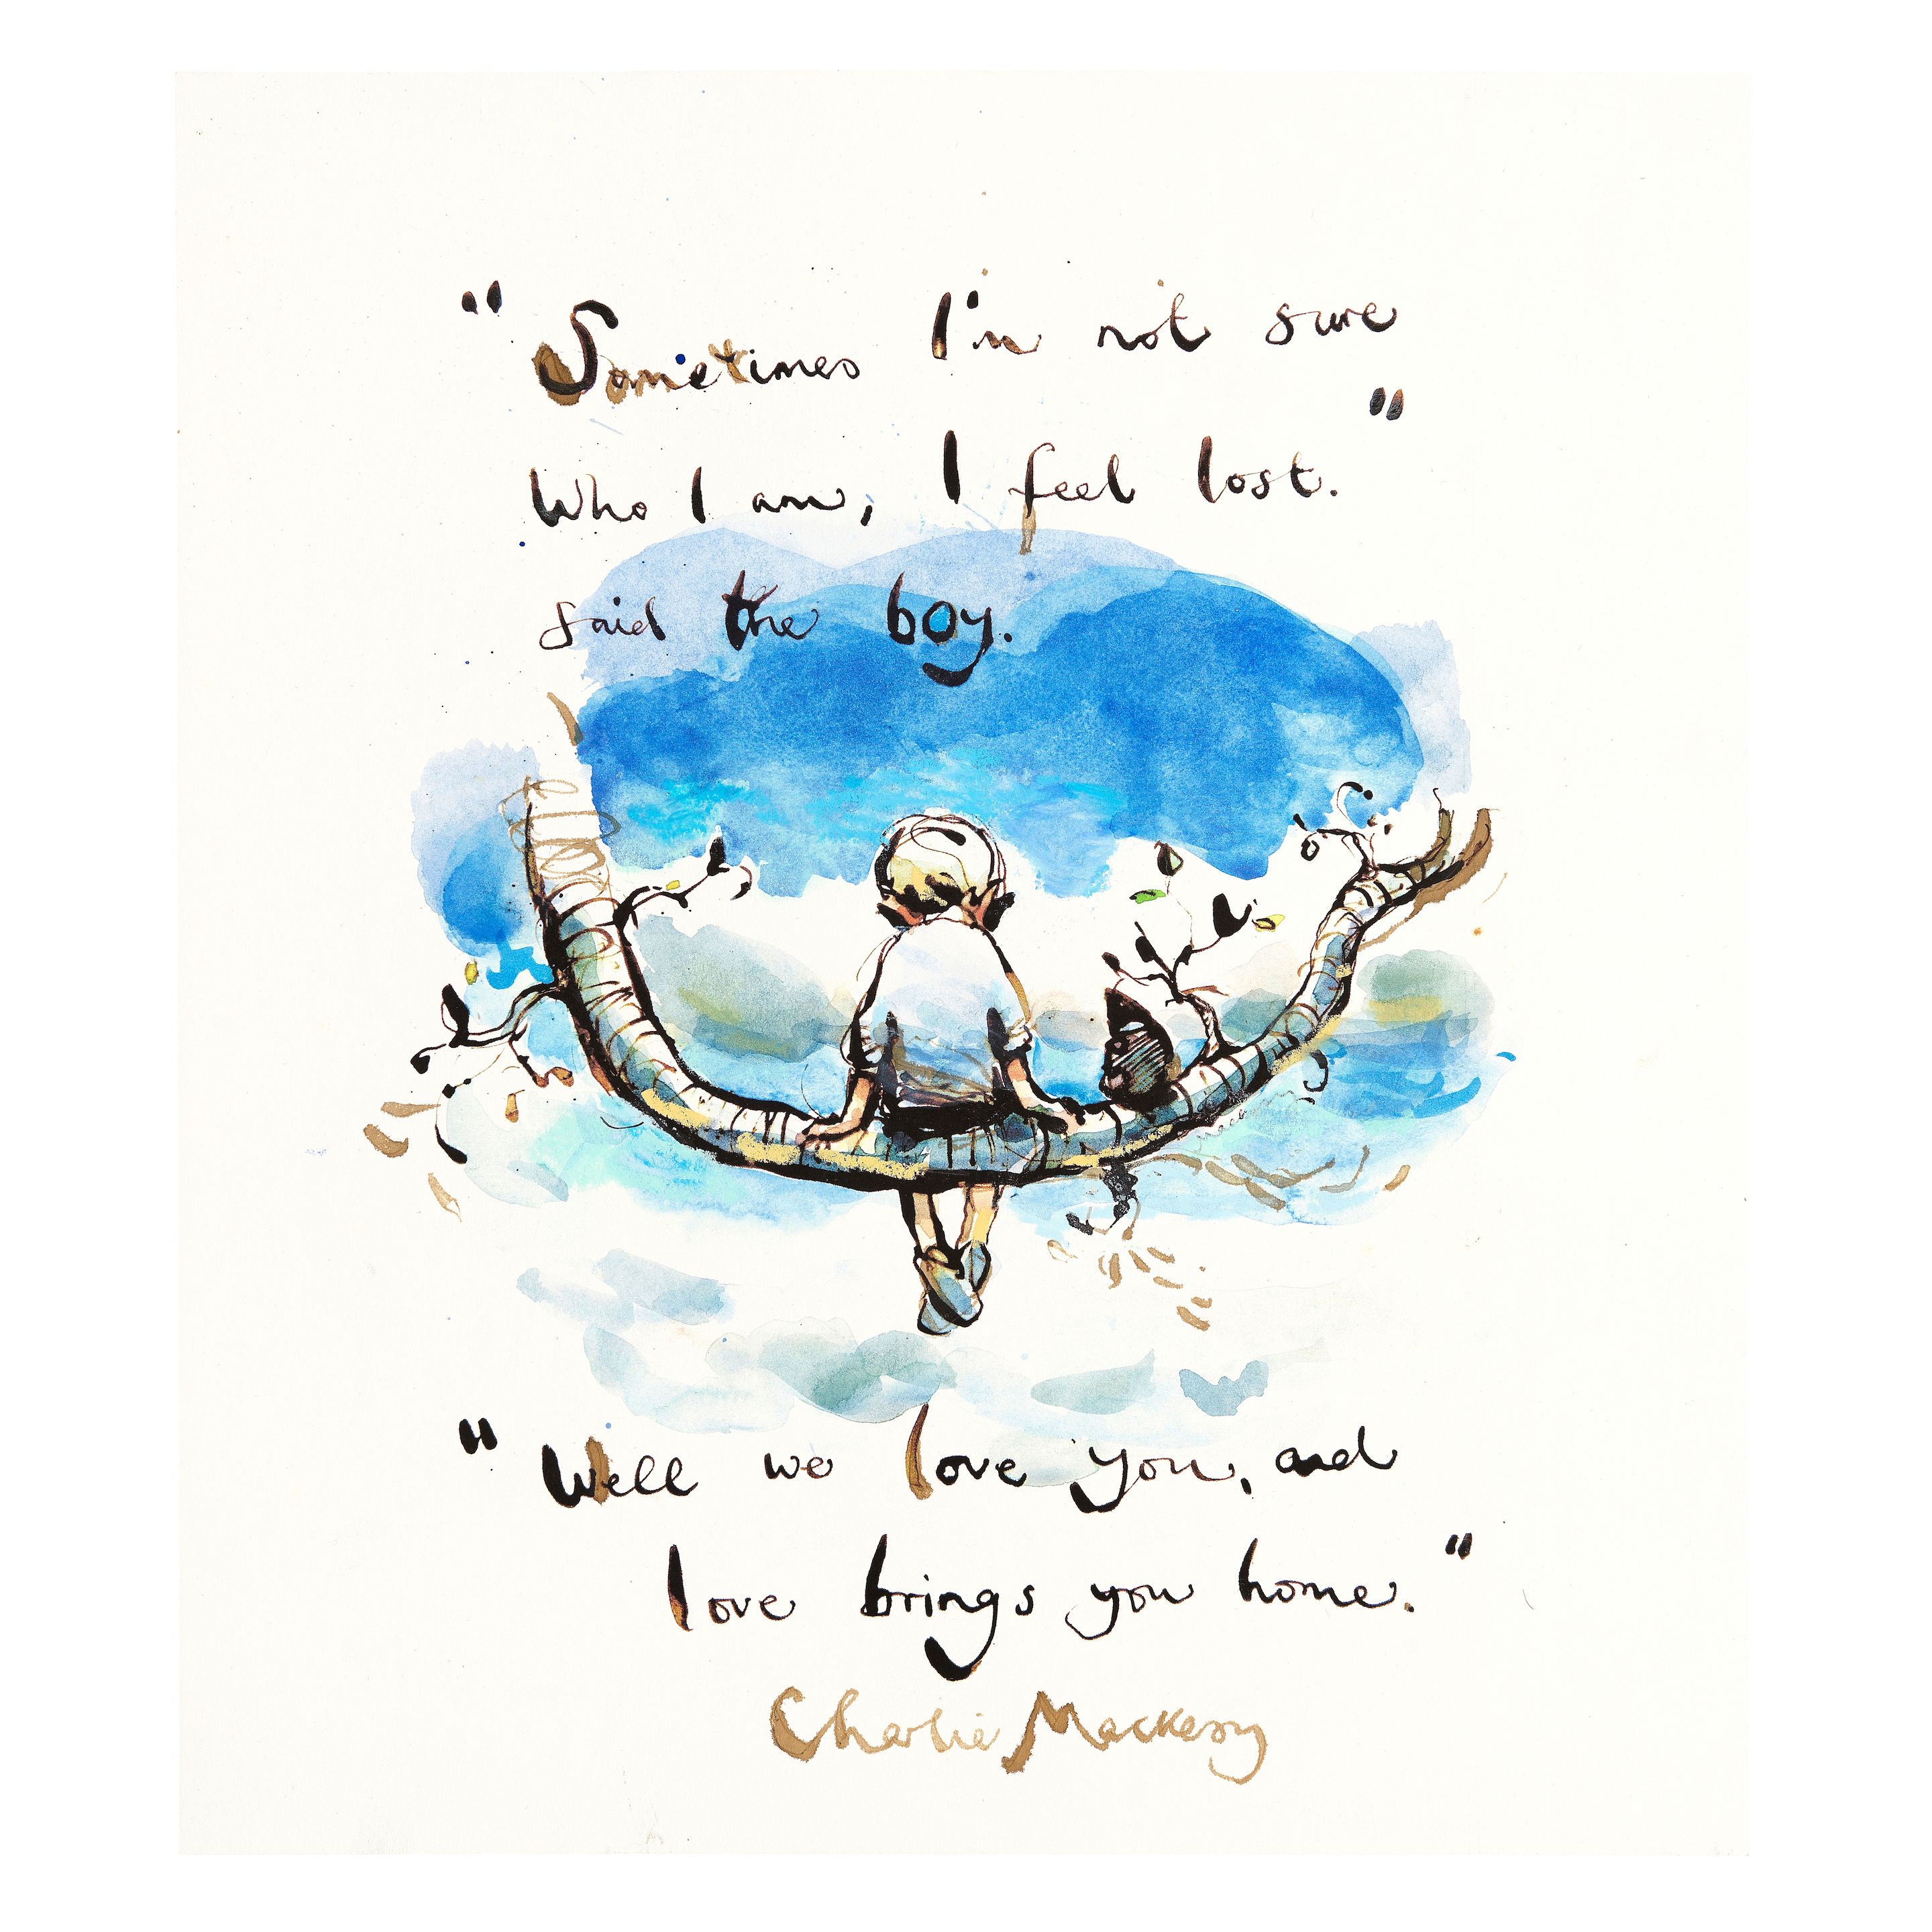 "Sometimes I'm not sure
Who I am, I feel lost."
said the boy.
"Well we love you, and
love brings you home."
Charlie Mackesy